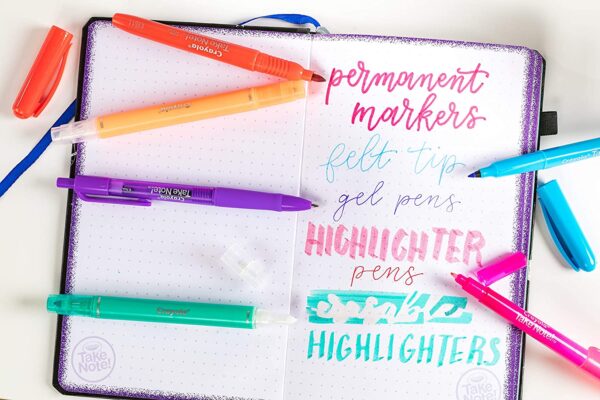 permanent
markers
felt tip
gel pens
HIGHLIGHTER
pens
HIGHLIGHTERS
Crayola
Take Note!
Crayola
Crayola
Take Note!
Take Note!
Take Note!
Take Note!